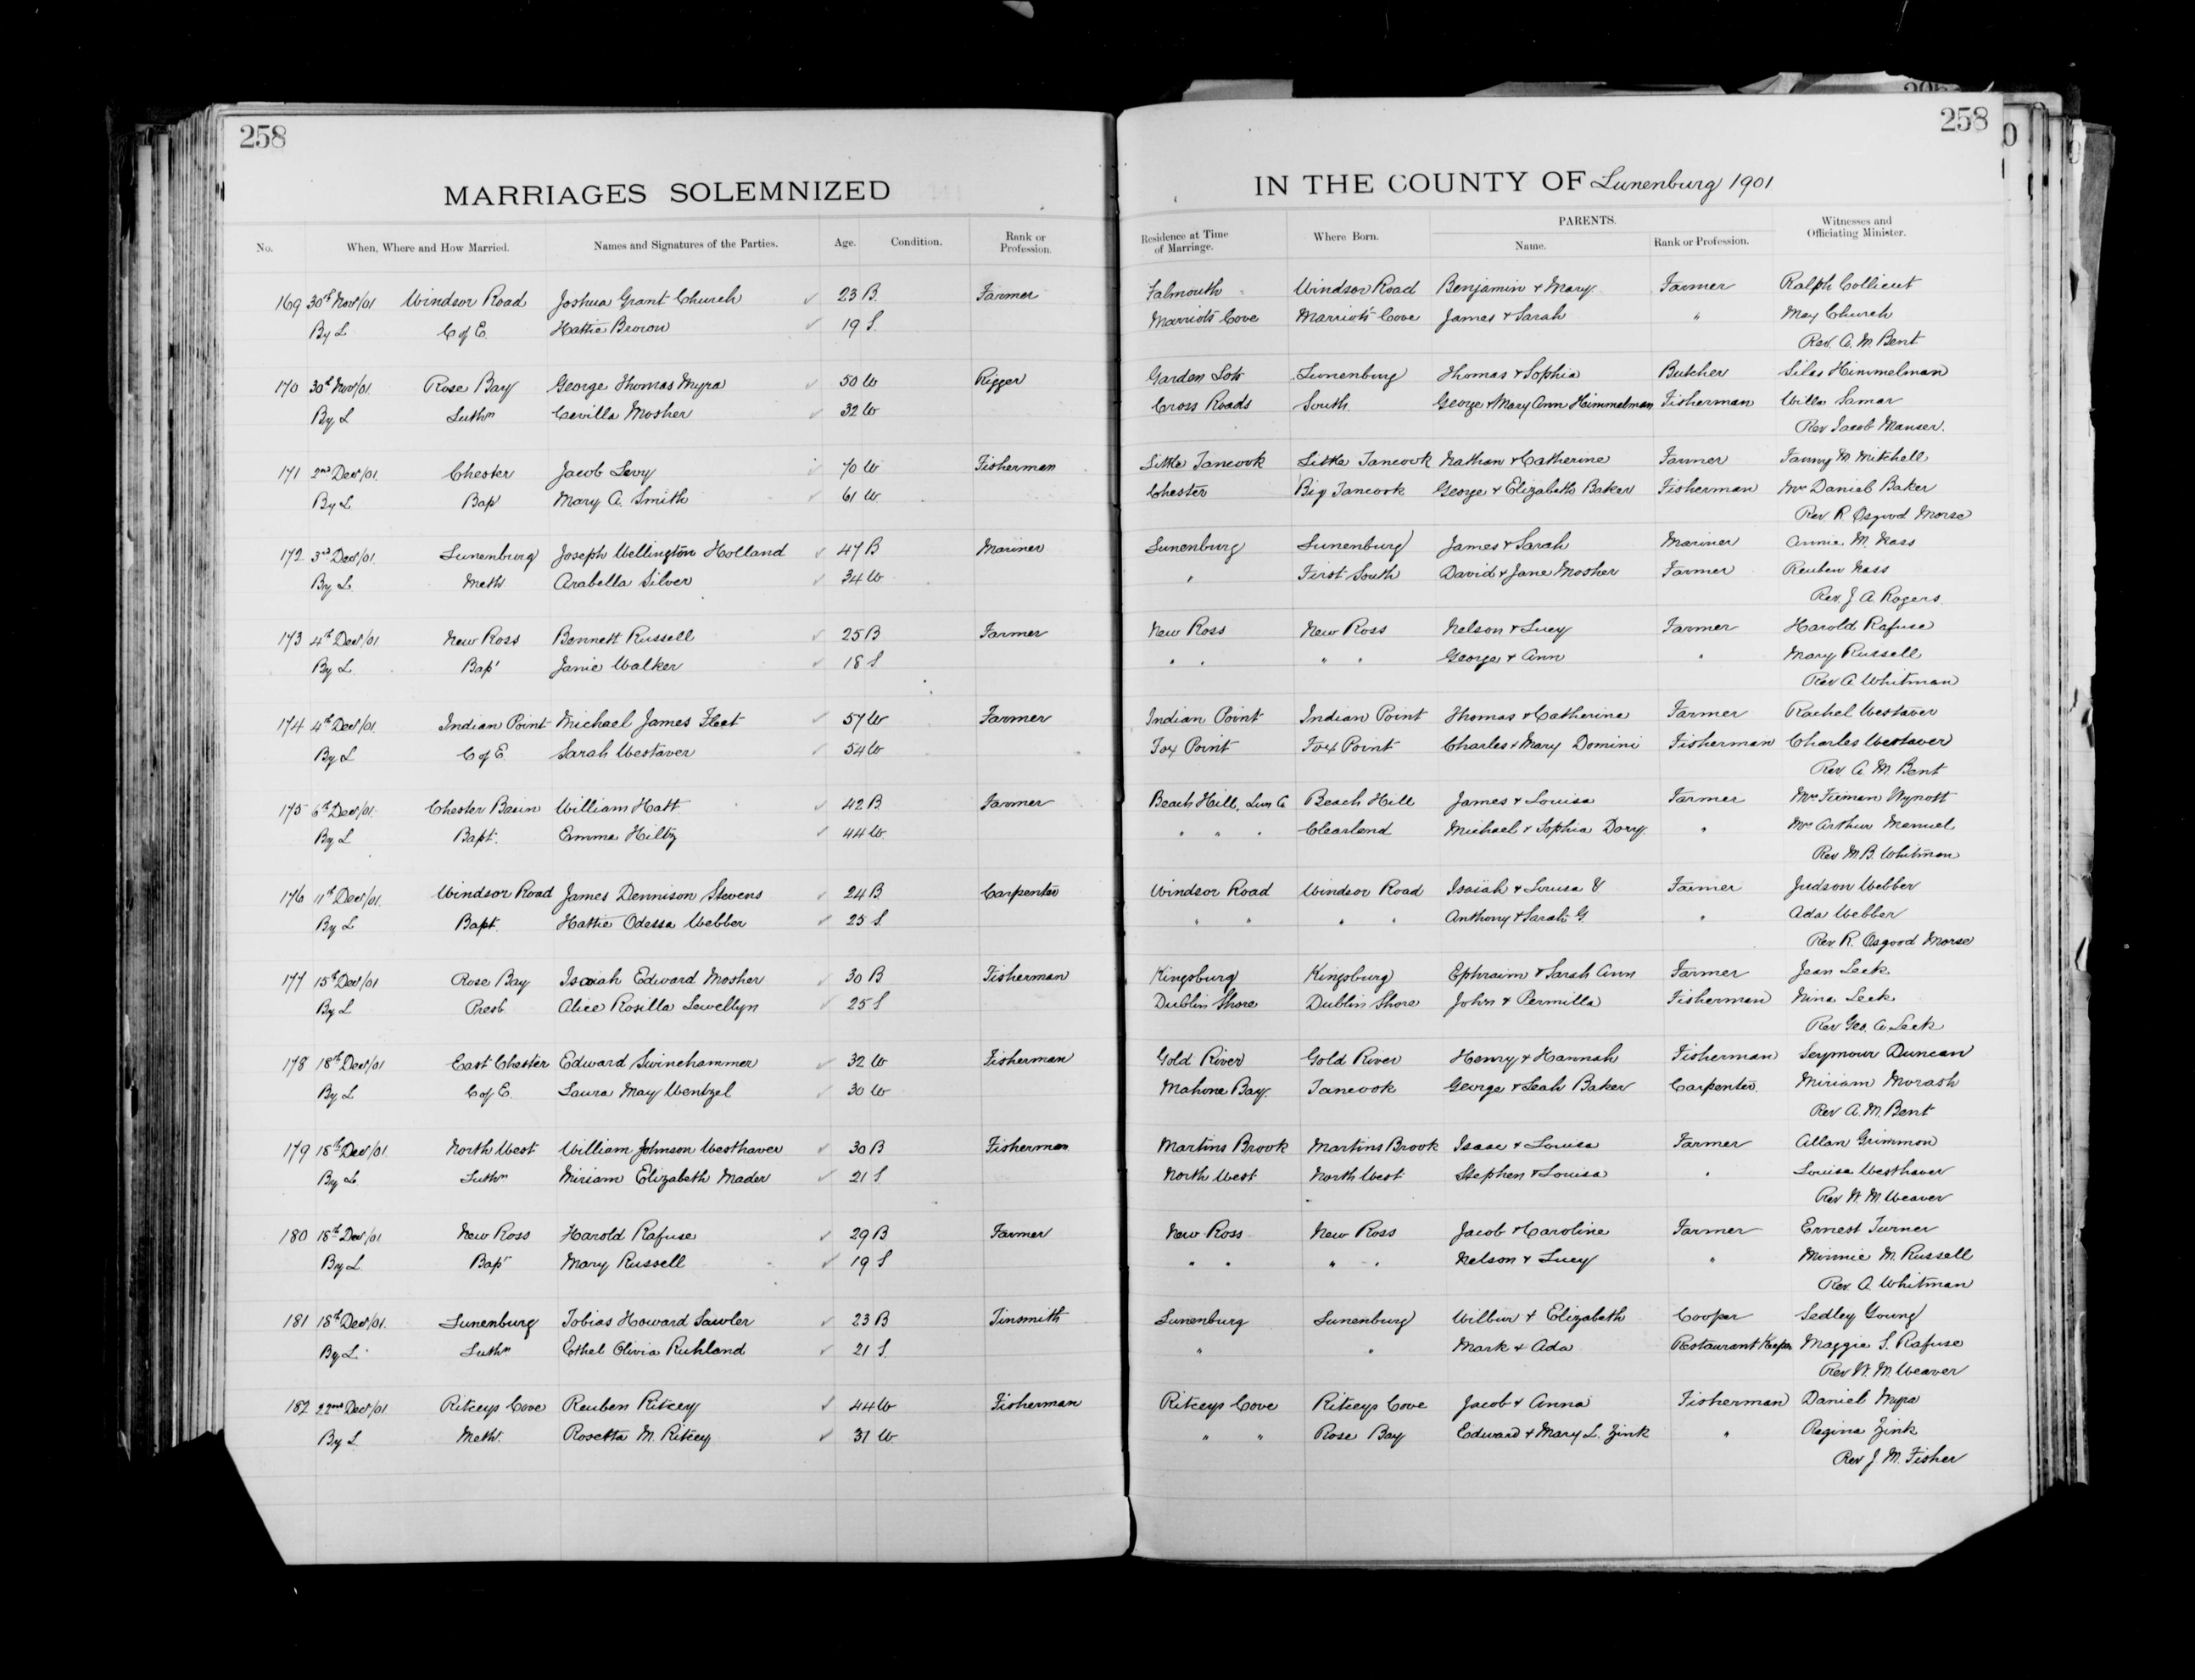 258
258
MARRIAGES SOLEMNIZED IN THE COUNTY OF Lunenburg 1901
No. When, Where and How Married. Names and Signatures of the Parties. Age. Condition. Rank or Profession. Residence at Time of Marriage. Where Born. PARENTS. Name. Rank or Profession. Witnesses and Officiating Minister.
169 30th Nov/01 Windsor Road Joshua Grant Church 23 B. Farmer Falmouth Windsor Road Benjamin & Mary Farmer Ralph Collicut
By L C of E. Hattie Brown 19 S. Marriots Cove Marriots Cove James & Sarah " May Church
Rev. A. M. Bent
170 30th Nov/01 Rose Bay George Thomas Myra 50 W Rigger Garden Lots Lunenburg Thomas & Sophia Butcher Silas Himmelman
By L Luthn Cevilla Mosher 32 W Cross Roads South George & Mary Ann Himmelman Fisherman Willa
Rev Jacob Manser.
171 2nd Dec/01. Chester Jacob Levy 70 W Fisherman Little Tancook Little Tancook Nathan & Catherine Farmer Fanny M Mitchell
By L Bap Mary A. Smith 61 W. Chester Big Tancook George & Elizabeth Baker Fisherman Mrs Daniel Baker
Rev. R. Osgood Morse
172 3rd Dec/01. Lunenburg Joseph Wellington Holland 47 B Mariner Lunenburg Lunenburg James & Sarah Mariner Annie M. Nass
By L. Meth Arabella Silver 34 W " First South David & Jane Mosher Farmer Reuben Nass
Rev. J. A. Rogers.
173 4th Dec/01. New Ross Bennett Russell 25 B Farmer New Ross New Ross Nelson & Lucy Farmer Harold Rafuse
By L. Bapt Janie Walker 18 S " " " " George & Ann " Mary Russell
Rev A Whitman
174 4th Dec/01. Indian Point Michael James Fleet 57 W Farmer Indian Point Indian Point Thomas & Catherine Farmer Rachel Westaver
By L C of E. Sarah Westaver 54 W Fox Point Fox Point Charles & Mary Domini Fisherman Charles Westaver
Rev. A. M. Bent
175 6th Dec/01. Chester Basin William Hatt 42 B Farmer Beach Hill, Lun Co Beach Hill James & Louisa Farmer Mrs Wynott
By L Bapt. Emma Hiltz 44 W. " " " Clearland Michael & Sophia Dory " Mrs Arthur Manuel
Rev M. B. Whitman
176 11th Dec/01. Windsor Road James Dennison Stevens 24 B Carpenter Windsor Road Windsor Road Isaiah & Louisa Farmer Judson Webber
By L Bapt. Hattie Odessa Webber 25 S. " " " " Anthony & Sarah G. " Ada Webber
Rev R. Osgood Morse
177 15th Dec/01 Rose Bay Isaiah Edward Mosher 30 B Fisherman Kingsburg Kingsburg Ephraim & Sarah Ann Farmer Jean Leck
By L Presb. Alice Rosilla Lewellyn 25 S Dublin Shore Dublin Shore John & Permilla Fisherman Nina Leck
Rev Geo. A. Leck
178 18th Dec/01 East Chester Edward Swinehammer 32 W Fisherman Gold River Gold River Henry & Hannah Fisherman Seymour Duncan
By L C of E. Laura May Wentzel 30 W Mahone Bay. Tancook George & Leah Baker Carpenter. Miriam Morash
Rev A. M. Bent
179 18th Dec/01. North West William Johnson Westhaver 30 B Fisherman Martins Brook Martins Brook Isaac & Louisa Farmer Allan Grimmon
By L Luthn Miriam Elizabeth Mader 21 S North West North West Stephen & Louisa " Louisa Westhaver
Rev W. M. Weaver
180 18th Dec/01 New Ross Harold Rafuse 29 B Farmer New Ross New Ross Jacob & Caroline Farmer Ernest Turner
By L. Bapt Mary Russell 19 S " " " " Nelson & Lucy " Minnie M. Russell
Rev. A Whitman
181 18th Dec/01. Lunenburg Tobias Howard Sawler 23 B Tinsmith Lunenburg Lunenburg Wilbur & Elizabeth Cooper Sedley Young
By L. Luthn Ethel Olivia Ruhland 21 S. " " Mark & Ada Restaurant Keeper Maggie S. Rafuse
Rev W. M. Weaver
182 22nd Dec/01. Ritceys Cove Reuben Ritcey 44 W Fisherman Ritceys Cove Ritceys Cove Jacob & Anna Fisherman Daniel Myra
By L. Meth. Rosetta M. Ritcey 31 W " " Rose Bay Edward & Mary L. Zink " Regina Zink
Rev J. M. Fisher